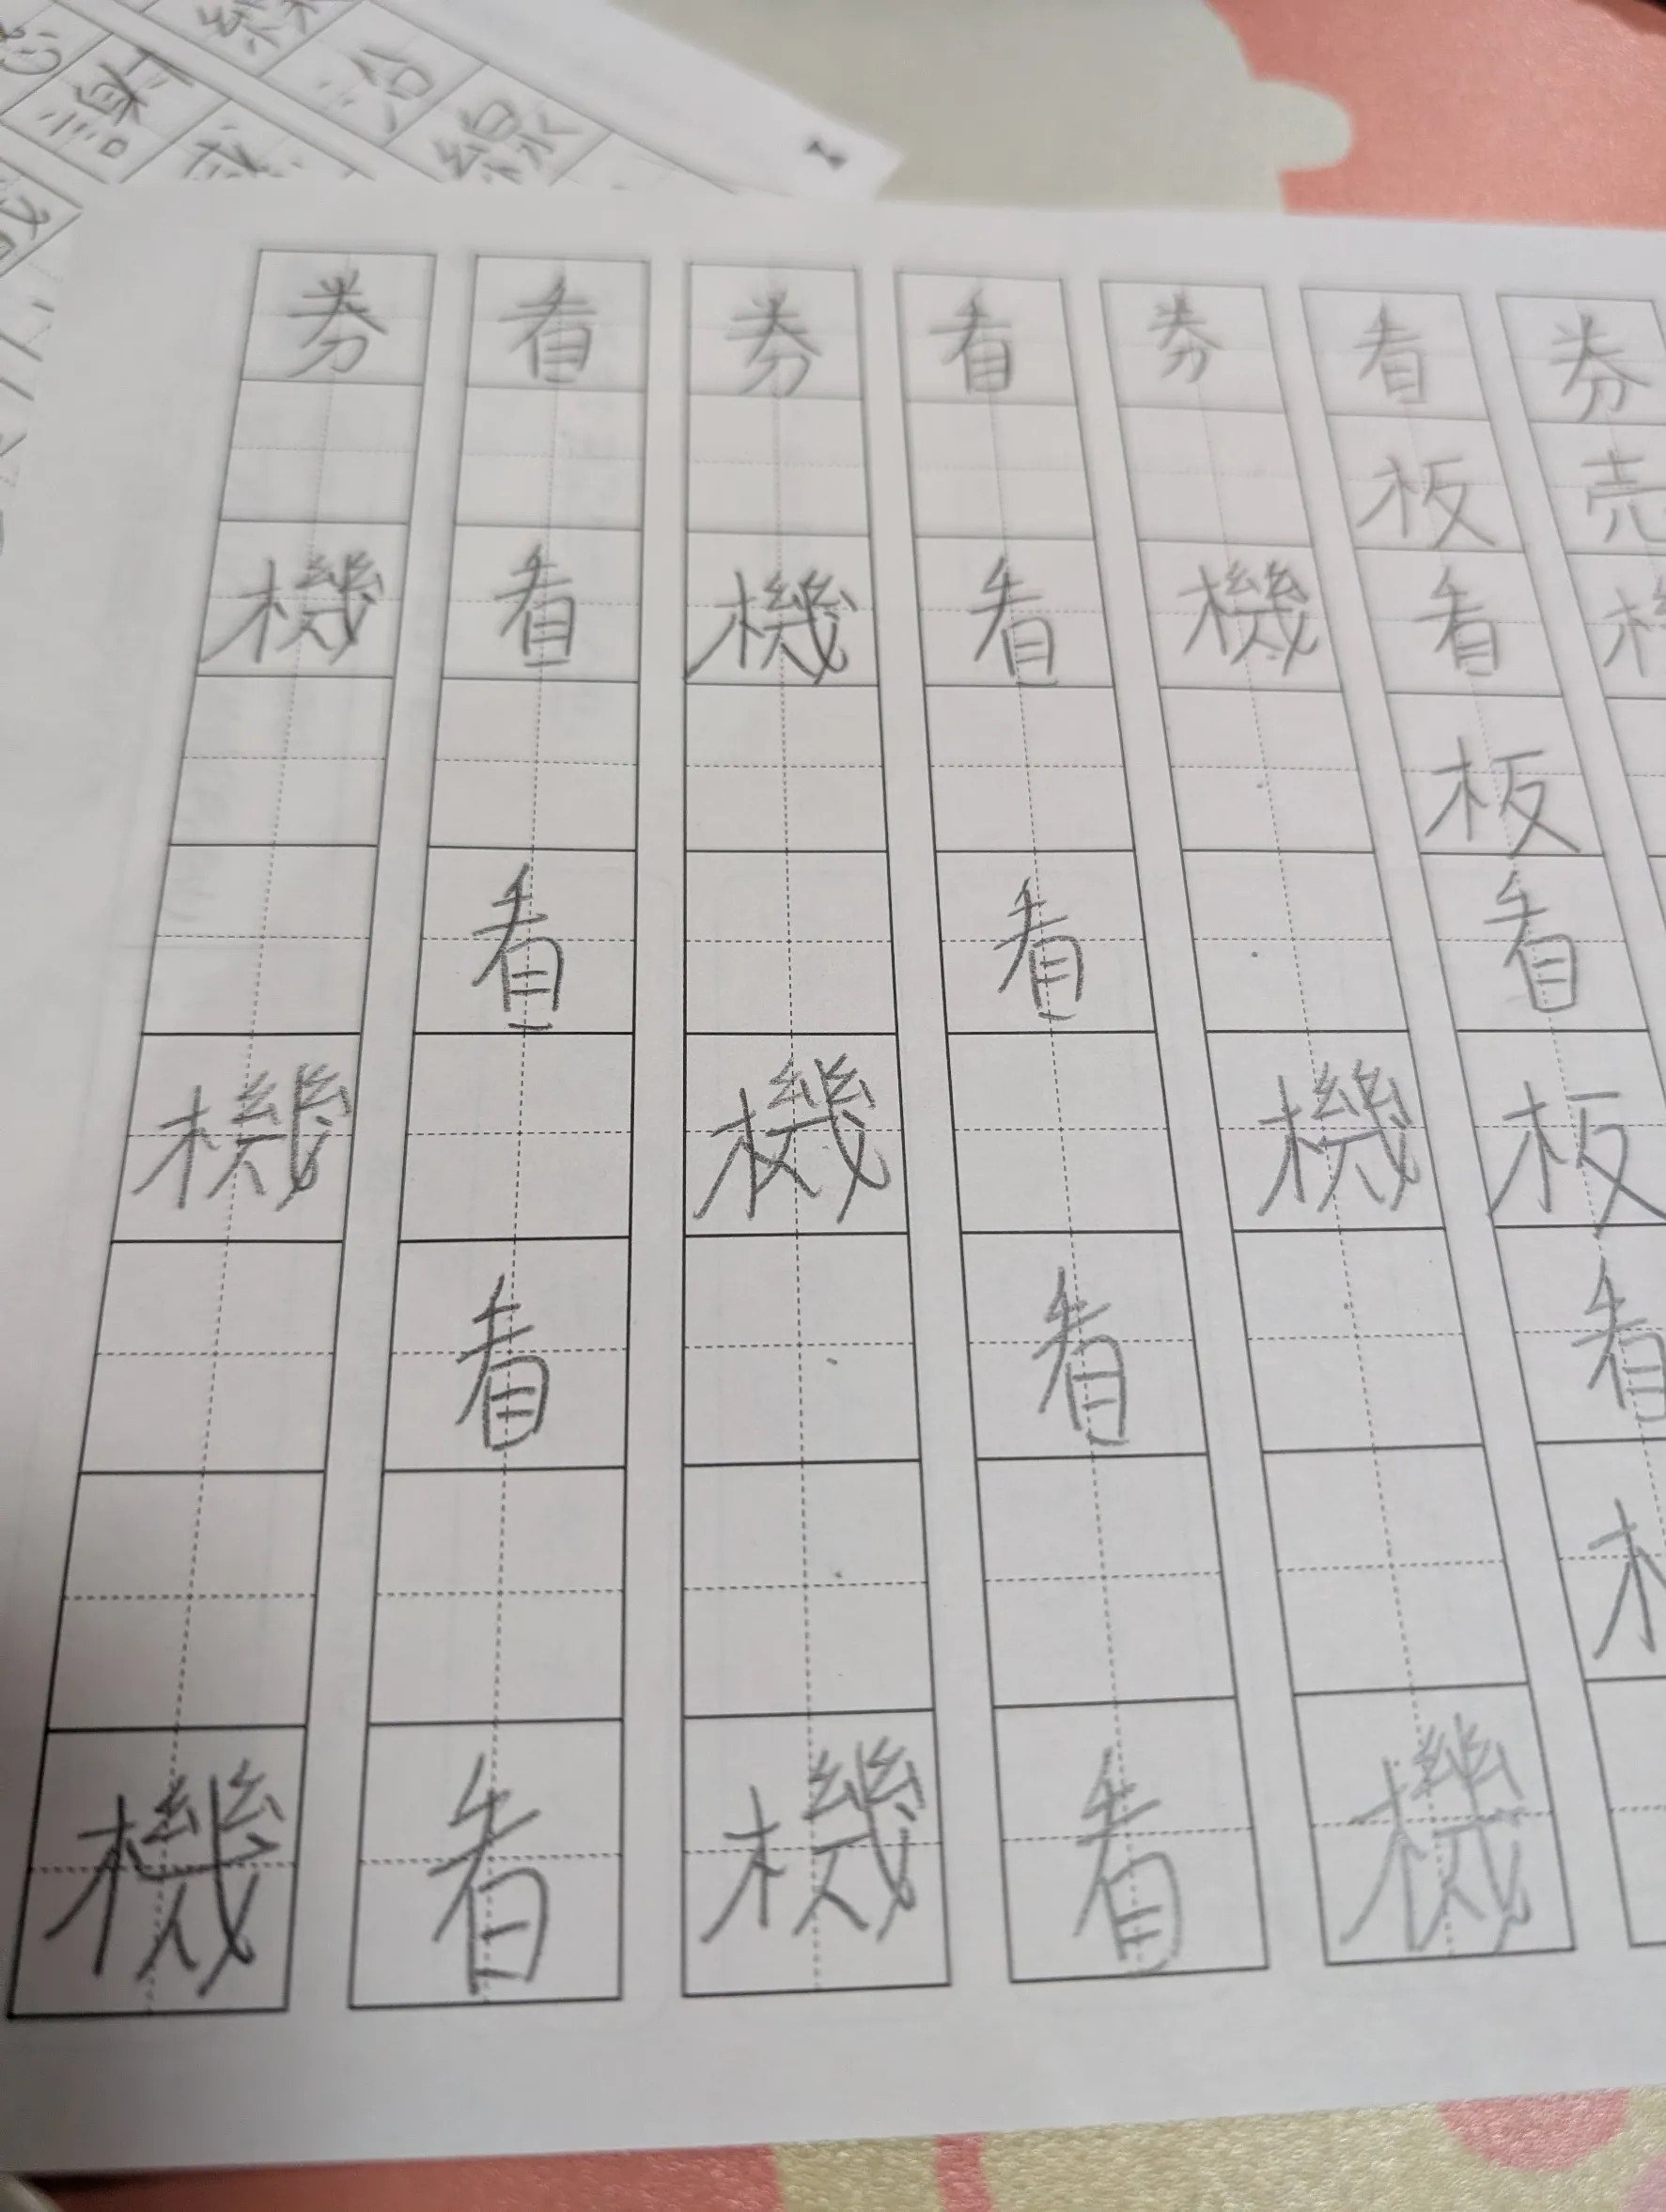 券売
看板看板看板看
券機機機
看看看看看
券機機機
看看看看看
券機機機